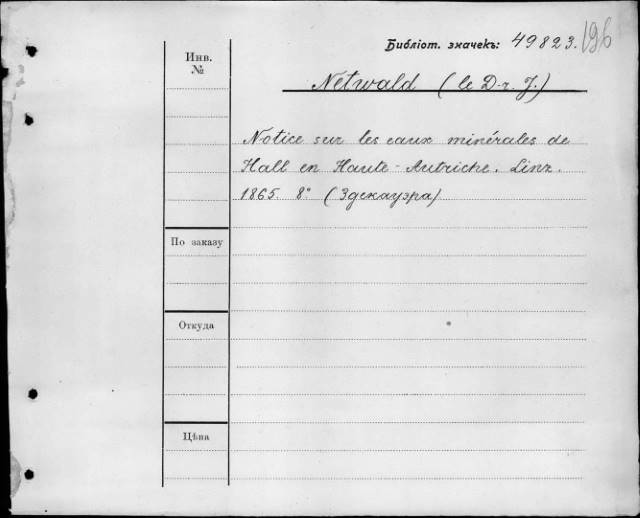 Библіот. значекъ: 49823.
196
Инв.
№
Netwald (le D-r. J.)
Notice sur les eaux minérales de
Hall en Haute-Autriche. Linz.
1865. 8° (Здекауэра)
По заказу
Откуда
Цѣна